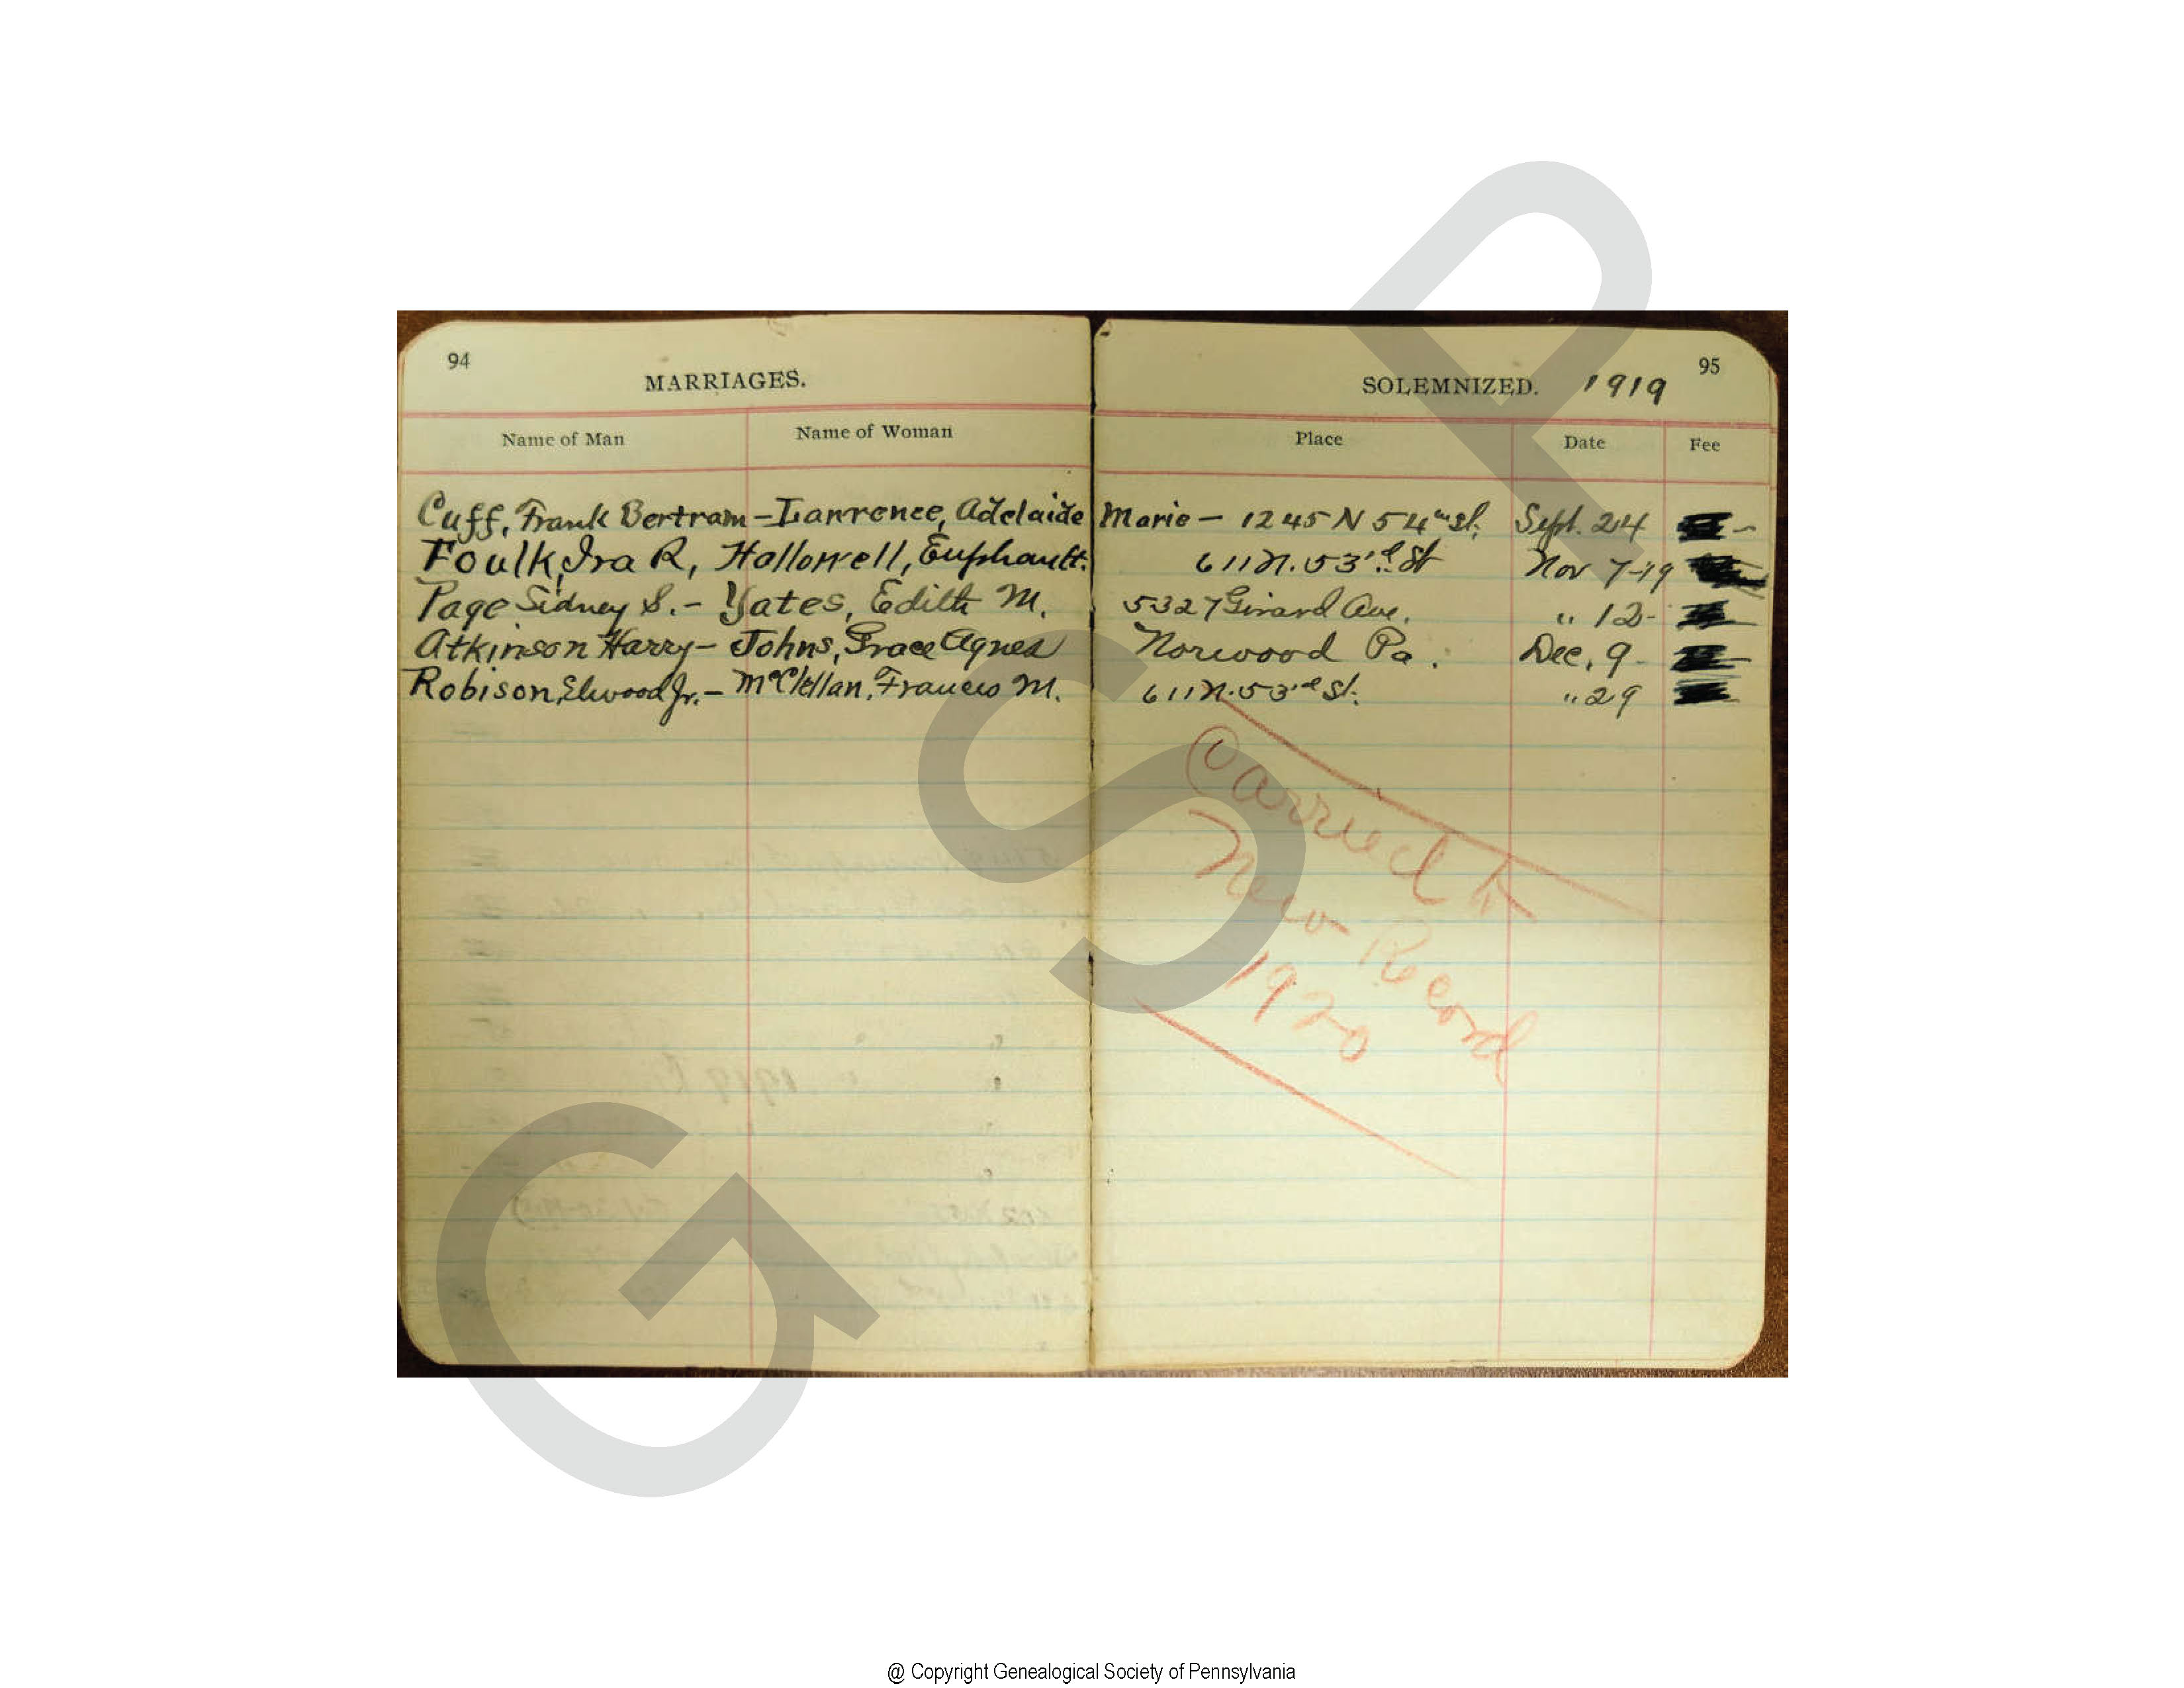 94
MARRIAGES.
Name of Man Name of Woman
95
SOLEMNIZED. 1919
Place Date Fee
Cuff, Frank Bertram - Lawrence, Adelaide Marie - 1245 N 54th St. Sept. 24
Foulk, Ira R, Hallowell, 611 N. 53rd St Nov 7-19
Page Sidney S. - Yates, Edith M. 5327 Girard Ave. " 12-
Atkinson Harry - Johns, Grace Agnes Norwood Pa. Dec, 9-
Robison, Elwood Jr. - McClellan, Frances M. 611 N. 53rd St. " 29
Carried to
New Record
1920
GSP
@ Copyright Genealogical Society of Pennsylvania